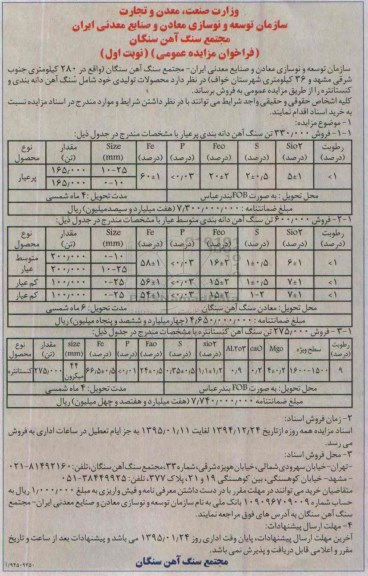 وزارت صنعت، معدن و تجارت
سازمان توسعه و نوسازی معادن و صنایع معدنی ایران
مجتمع سنگ آهن سنگان
(فراخوان مزایده عمومی) (نوبت اول)
سازمان توسعه و نوسازی معادن و صنایع معدنی ایران- مجتمع سنگ آهن سنگان (واقع در ۲۸۰ کیلومتری جنوب
شرقی مشهد و ۳۶ کیلومتری شهرستان خواف) در نظر دارد محصولات تولیدی خود شامل سنگ آهن دانه بندی و
کنسانتره را از طریق مزایده عمومی به فروش برساند.
کلیه اشخاص حقوقی و حقیقی واجد شرایط می توانند با در نظر داشتن شرایط و موارد مندرج در اسناد مزایده نسبت
به خرید اسناد اقدام نمایند.
۱- موضوع مزایده:
۱-۱- فروش ۳۳۰/۰۰۰ تن سنگ آهن دانه بندی پرعیار با مشخصات مندرج در جدول ذیل:
نوع محصول مقدار (تن) Size (mm) Fe (درصد) P (درصد) Feo (درصد) S (درصد) Sio2 (درصد) رطوبت (درصد)
پرعیار ۱۶۵/۰۰۰ ۱۰-۲۵ ۶۰±۱ <۰/۰۳ ۲۰±۲ ۲±۰/۵ ۵±۱ <۱
۱۶۵/۰۰۰ ۰-۱۰
محل تحویل: به صورت FOB بندرعباس مدت تحویل: ۴ ماه شمسی
مبلغ ضمانتنامه: ۷/۳۰۰/۰۰۰/۰۰۰ (هفت میلیارد و سیصد میلیون) ریال
۱-۲- فروش ۶۰۰/۰۰۰ تن سنگ آهن دانه بندی متوسط عیار با مشخصات مندرج در جدول ذیل:
نوع محصول مقدار (تن) Size (mm) Fe (درصد) P (درصد) Feo (درصد) S (درصد) Sio2 (درصد) رطوبت (درصد)
متوسط عیار ۲۰۰/۰۰۰ ۰-۱۰ ۵۸±۱ <۰/۰۳ ۱۶±۲ ۱±۰/۵ ۶±۱ <۱
۲۰۰/۰۰۰ ۱۰-۲۵
کم عیار ۱۰۰/۰۰۰ ۱۰-۲۵ ۵۶±۱ <۰/۰۳ ۱۵±۲ ۱±۰/۵ ۷±۱ <۱
کم عیار ۱۰۰/۰۰۰ ۱۰-۲۵ ۵۴±۱ <۰/۰۳ ۱۵±۲ ۱-۲ ۷±۱ <۱
محل تحویل: معادن سنگ آهن سنگان مدت تحویل: ۶ ماه شمسی
مبلغ ضمانتنامه: ۴/۶۵۰/۰۰۰/۰۰۰ (چهار میلیارد و ششصد و پنجاه میلیون) ریال
۱-۳- فروش ۲۷۵/۰۰۰ تن سنگ آهن کنسانتره با مشخصات مندرج در جدول ذیل:
نوع محصول مقدار (تن) size میکرون Fe (درصد) P (درصد) Feo (درصد) S (درصد) sio2 (درصد) AL2o3 caO Mgo سطح ویژه رطوبت (درصد)
کنسانتره ۲۷۵/۰۰۰ ۴۴ ۶۶/۵±۰/۵
محل تحویل: به صورت FOB بندرعباس مدت تحویل: ۴ ماه شمسی
مبلغ ضمانتنامه: ۷/۷۴۰/۰۰۰/۰۰۰ (هفت میلیارد و هفتصد و چهل میلیون) ریال
۲- زمان فروش اسناد:
اسناد مزایده همه روزه از تاریخ ۱۳۹۴/۱۲/۲۴ لغایت ۱۳۹۵/۰۱/۱۱ به جز ایام تعطیل در ساعات اداری به فروش
می رسد.
۳- محل فروش اسناد:
-تهران- خیابان سهروردی شمالی، خیابان هویزه شرقی، شماره ۳۳، مجتمع سنگ آهن سنگان، تلفن: ۸۱۴۹۲۱۶۰-۰۲۱
- مشهد- خیابان کوهسنگی، بین کوهسنگی ۱۹ و ۲۱، پلاک ۳۷۷، تلفن: ۳۸۴۴۹۹۲۵-۰۵۱
متقاضیان خرید می توانند در مهلت مقرر با در دست داشتن معرفی نامه و فیش واریزی به مبلغ ۱/۰۰۰/۰۰۰ ریال به
حساب شماره ۰۱۰۹۶۷۰۹۰۰۹ بانک ملی به نام سازمان توسعه و نوسازی معادن و صنایع معدنی ایران- مجتمع
سنگ آهن سنگان به آدرس های فوق مراجعه نمایند.
۴- مهلت ارسال پیشنهادات:
آخرین مهلت ارسال پیشنهادات، پایان وقت اداری روز ۱۳۹۵/۰۱/۲۴ می باشد و پیشنهادات بعد از ساعت و تاریخ
مقرر و اعلامی قابل دریافت و پذیرش نمی باشد.
مجتمع سنگ آهن سنگان